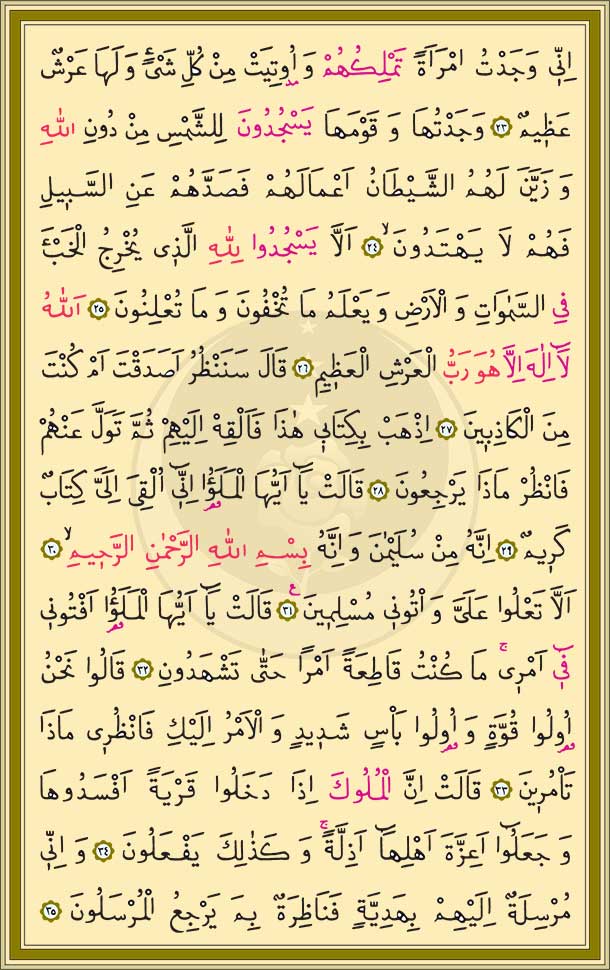 اِنّ۪ي وَجَدْتُ امْرَاَةً تَمْلِكُهُمْ وَاُو۫تِيَتْ مِنْ كُلِّ شَيْءٍ وَلَهَا عَرْشٌ
عَظ۪يمٌ ﴿٢٣﴾ وَجَدْتُهَا وَقَوْمَهَا يَسْجُدُونَ لِلشَّمْسِ مِنْ دُونِ اللّٰهِ
وَزَيَّنَ لَهُمُ الشَّيْطَانُ اَعْمَالَهُمْ فَصَدَّهُمْ عَنِ السَّب۪يلِ
فَهُمْ لَا يَهْتَدُونَۙ ﴿٢٤﴾ اَلَّا يَسْجُدُوا لِلّٰهِ الَّذ۪ي يُخْرِجُ الْخَبْءَ
فِي السَّمٰوَاتِ وَالْاَرْضِ وَيَعْلَمُ مَا تُخْفُونَ وَمَا تُعْلِنُونَ ﴿٢٥﴾ اَللّٰهُ
لَٓا اِلٰهَ اِلَّا هُوَ رَبُّ الْعَرْشِ الْعَظ۪يمِ ﴿٢٦﴾ قَالَ سَنَنْظُرُ اَصَدَقْتَ اَمْ كُنْتَ
مِنَ الْكَاذِب۪ينَ ﴿٢٧﴾ اِذْهَبْ بِكِتَاب۪ي هٰذَا فَاَلْقِهْ اِلَيْهِمْ ثُمَّ تَوَلَّ عَنْهُمْ
فَانْظُرْ مَاذَا يَرْجِعُونَ ﴿٢٨﴾ قَالَتْ يَٓا اَيُّهَا الْمَلَؤُ۬ا اِنّ۪ٓي اُلْقِيَ اِلَيَّ كِتَابٌ
كَر۪يمٌ ﴿٢٩﴾ اِنَّهُ مِنْ سُلَيْمٰنَ وَاِنَّهُ بِسْمِ اللّٰهِ الرَّحْمٰنِ الرَّح۪يمِۙ ﴿٣٠﴾
اَلَّا تَعْلُوا عَلَيَّ وَاْتُون۪ي مُسْلِم۪ينَ۟ ﴿٣١﴾ قَالَتْ يَٓا اَيُّهَا الْمَلَؤُ۬ا اَفْتُون۪ي
ف۪ٓي اَمْر۪يۚ مَا كُنْتُ قَاطِعَةً اَمْرًا حَتّٰى تَشْهَدُونِ ﴿٣٢﴾ قَالُوا نَحْنُ
اُو۬لُوا قُوَّةٍ وَاُو۬لُوا بَأْسٍ شَد۪يدٍ وَالْاَمْرُ اِلَيْكِ فَانْظُر۪ي مَاذَا
تَأْمُر۪ينَ ﴿٣٣﴾ قَالَتْ اِنَّ الْمُلُوكَ اِذَا دَخَلُوا قَرْيَةً اَفْسَدُوهَا
وَجَعَلُٓوا اَعِزَّةَ اَهْلِهَٓا اَذِلَّةًۚ وَكَذٰلِكَ يَفْعَلُونَ ﴿٣٤﴾ وَاِنّ۪ي
مُرْسِلَةٌ اِلَيْهِمْ بِهَدِيَّةٍ فَنَاظِرَةٌ بِمَ يَرْجِعُ الْمُرْسَلُونَ ﴿٣٥﴾